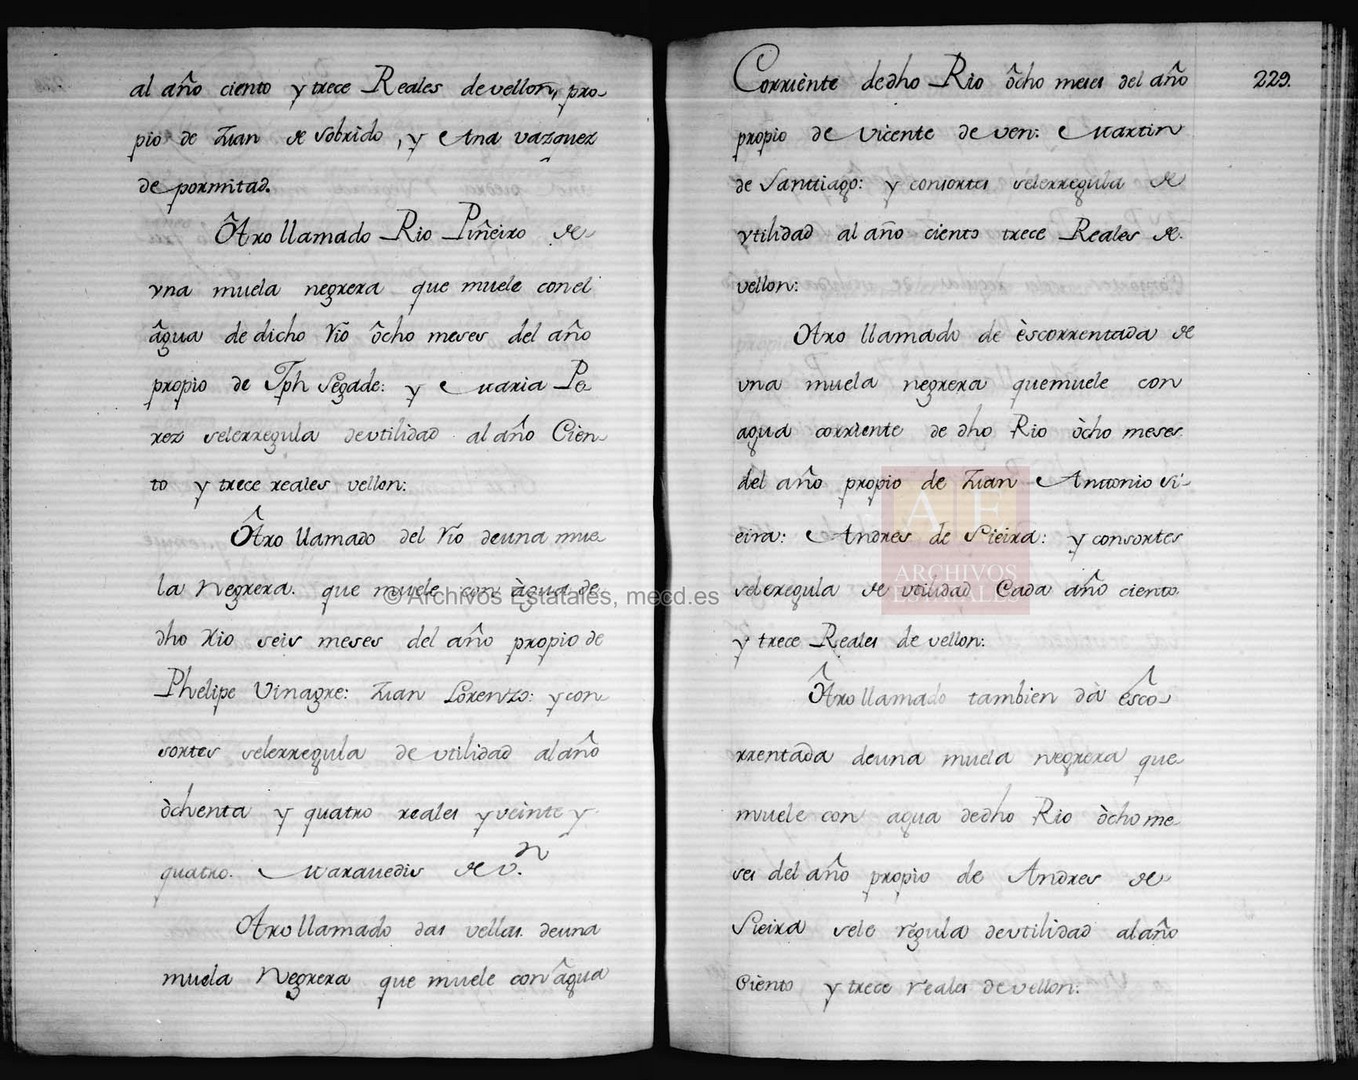 al año ciento y trece Reales de vellon, pro-
pio de Juan de Sobrido, y Ana vazquez
de pormitad.
Otro llamado Rio Piñeiro de
vna muela negrera que muele con el
agua de dicho Rio ocho meses del año
propio de Jph Segade: y Maria Pe-
rez selerregula de utilidad al año Cien-
to y trece reales vellon:
Otro llamado del Rio de una mue-
la Negrera. que muele con agua de
dho Rio seis meses del año propio de
Phelipe Vinagre: Juan Lorenzo: y con-
sortes selerregula de utilidad al año
ochenta y quatro reales y veinte y
quatro. Maravedis de v.n
Otro llamado das vellas. de una
muela Negrera que muele con agua
229.
Corriente de dho Rio ocho meses del año
propio de Vicente de ven: Martin
de Santtiago: y consortes selerregula de
vtilidad al año ciento trece Reales de.
vellon:
Otro llamado de escorrentada de
vna muela negrera que muele con
agua corriente de dho Rio ocho meses
del año propio de Juan Antonio Vi-
eira: Andres de Sieira: y consortes
seleregula de utilidad Cada año ciento
y trece Reales de vellon:
Otro llamado tambien dà esco-
rrentada de una muela negrera que
muele con agua de dho Rio ocho me-
ses del año propio de Andres de
Sieira sele régula de utilidad al año
Ciento y trece reales de vellon:
© Archivos Estatales, mecd.es
AE
ARCHIVOS
ESTATALES